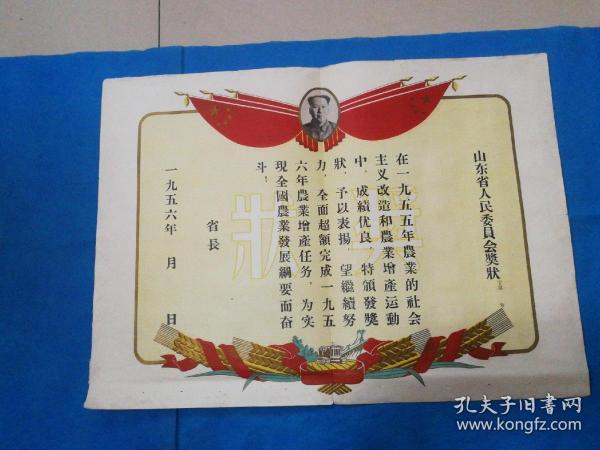 山东省人民委員会獎狀
在一九五五年農業的社会
主义改造和農業增產运動
中，成績优良，特頒發獎
狀，予以表揚，望繼續努
力，全面超額完成一九五
六年農業增產任务，为实
現全國農業發展綱要而奋
斗！
省長
一九五六年 月 日
獎狀
孔夫子旧書网
www.kongfz.com